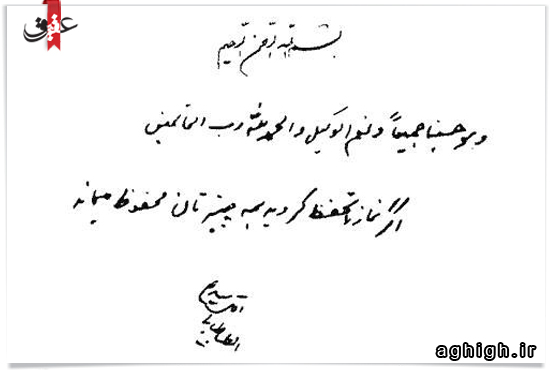 عقیق
بسم الله الرحمن الرحیم
و هو حسبنا جمیعاً و نعم الوکیل و الحمد لله رب العالمین
اگر نماز را تحفظ کردید همه چیزتان محفوظ میماند
الطباطبایی
aghigh.ir